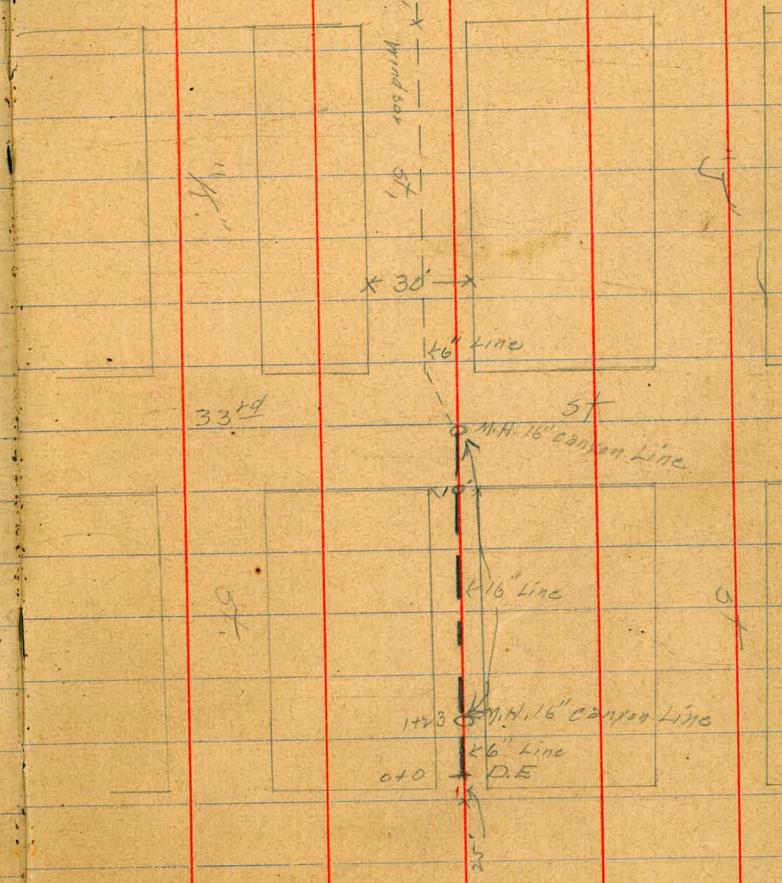 Windsor St,
"K."
"J"
30'
6" Line
33rd
St
M.H. 16" Canyon Line
10'
16" Line
St.
St
1+23
M.H. 16" Canyon Line
6" Line
0+0
D.E